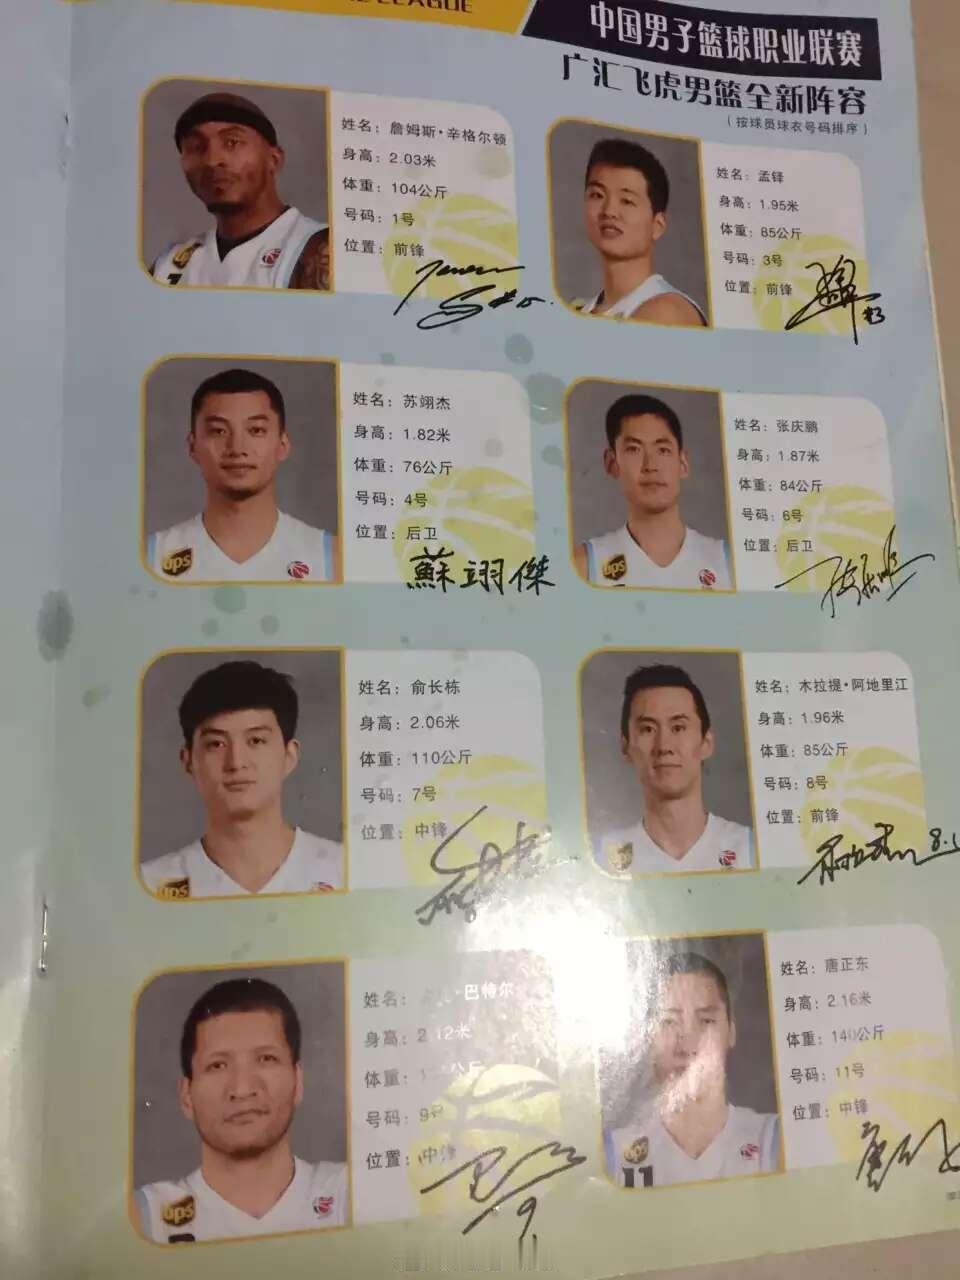 LEAGUE
中国男子篮球职业联赛
广汇飞虎男篮全新阵容
（按球员球衣号码排序）
姓名：詹姆斯·辛格尔顿
身高：2.03米
体重：104公斤
号码：1号
位置：前锋
姓名：孟铎
身高：1.95米
体重：85公斤
号码：3号
位置：前锋
姓名：苏翊杰
身高：1.82米
体重：76公斤
号码：4号
位置：后卫
ups
蘇翊傑
姓名：张庆鹏
身高：1.87米
体重：84公斤
号码：6号
位置：后卫
ups
姓名：俞长栋
身高：2.06米
体重：110公斤
号码：7号
位置：中锋
ups
姓名：木拉提·阿地里江
身高：1.96米
体重：85公斤
号码：8号
位置：前锋
姓名：·巴特尔
身高：2.12米
体重：公斤
号码：9号
位置：中锋
ups
9
姓名：唐正东
身高：2.16米
体重：140公斤
号码：11号
位置：中锋
ups
11